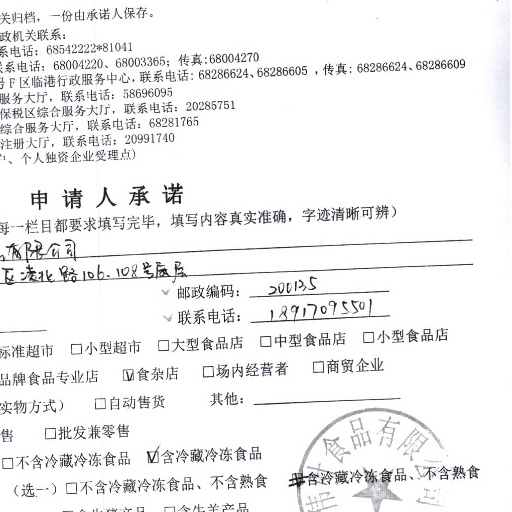 关归档，一份由承诺人保存。
政机关联系：
系电话：68542222*81041
系电话：68004220、68003365；传真:68004270
号F区临港行政服务中心，联系电话：68286624、68286605，传真：68286624、68286609
服务大厅，联系电话：58696095
保税区综合服务大厅，联系电话：20285751
综合服务大厅，联系电话：68281765
注册大厅，联系电话：20991740
户、个人独资企业受理点)
申请人承诺
每一栏目都要求填写完毕，填写内容真实准确，字迹清晰可辨）
有限公司
区 北路106、108号底层
邮政编码：200135
联系电话：18917095501
标准超市 □小型超市 □大型食品店 □中型食品店 □小型食品店
品牌食品专业店 ☑食杂店 □场内经营者 □商贸企业
实物方式） □自动售货 其他：
售 □批发兼零售
□不含冷藏冷冻食品 ☑含冷藏冷冻食品
（选一）□不含冷藏冷冻食品、不含熟食 含冷藏冷冻食品、不含熟食
食品有限公司